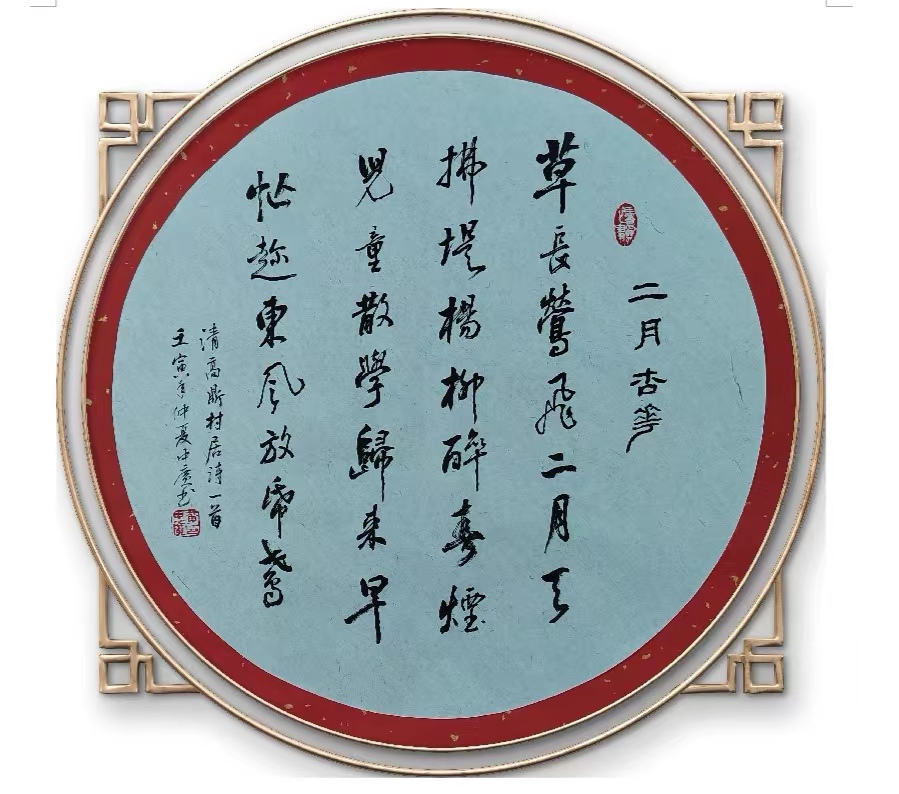 二月杏華
草長鶯飛二月天
拂堤楊柳醉春煙
兒童散學歸来早
忙趂東風放帋鳶
清高鼎村居詩一首
壬寅年仲夏中廣书